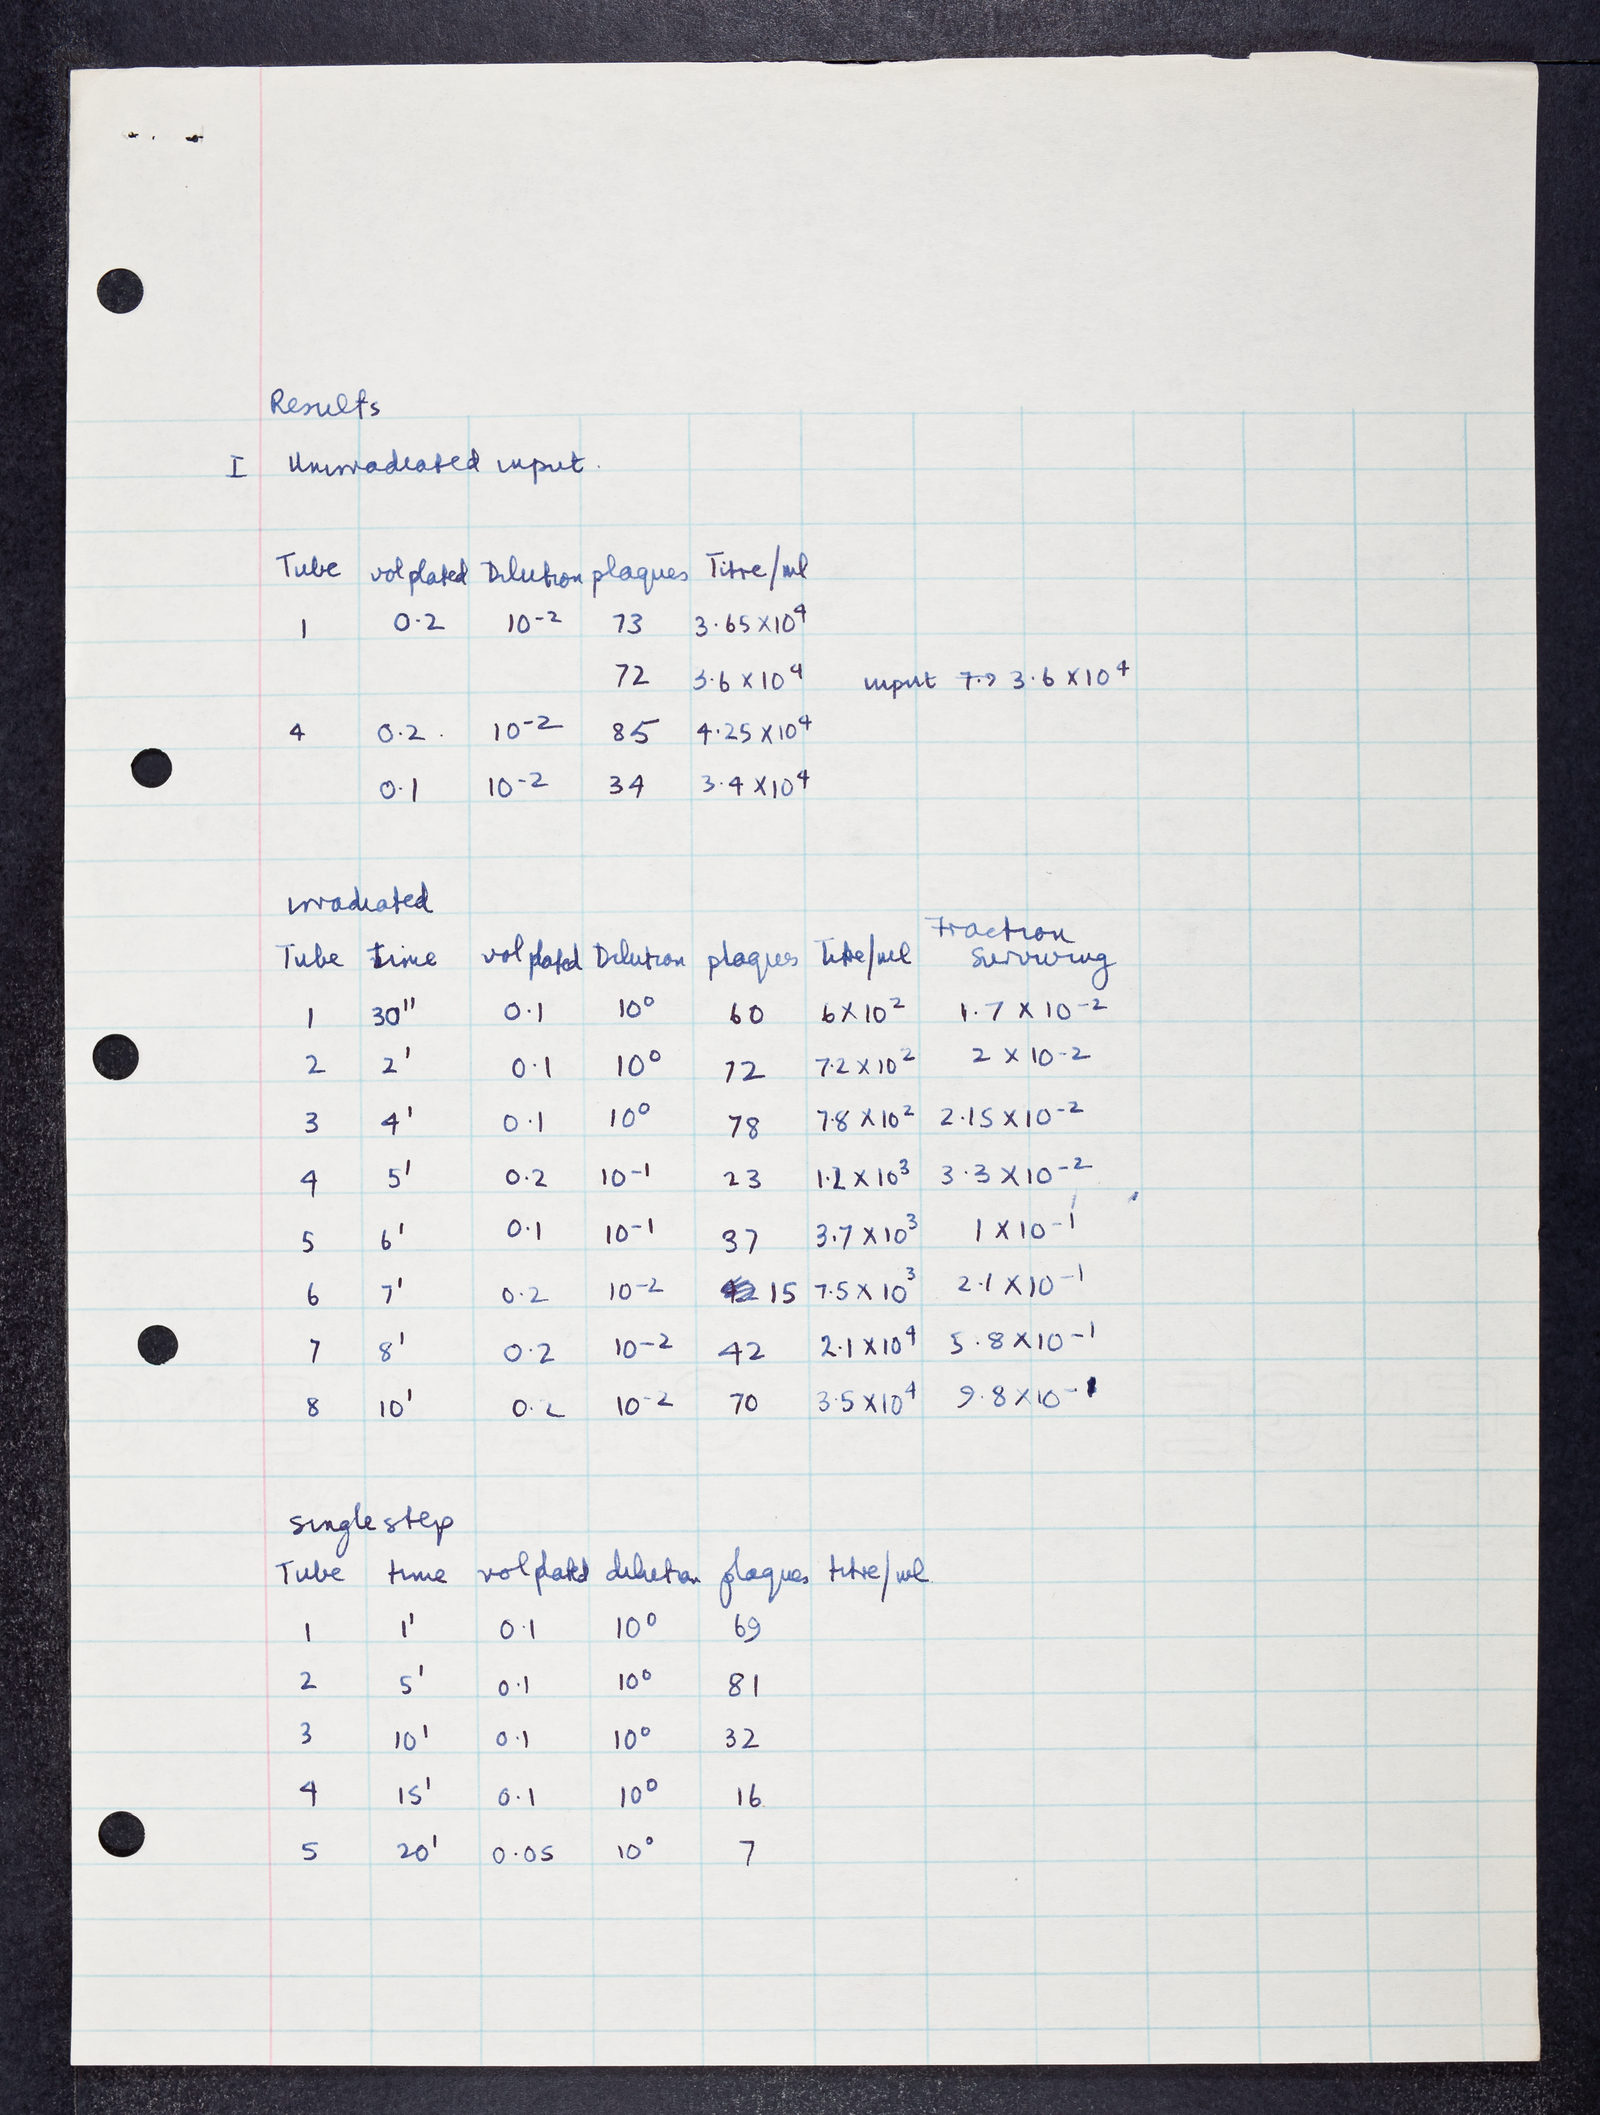 Results
I Unirradiated input.
Tube vol plated Dilution plaques Titre/ml
1 0.2 10⁻² 73 3.65 × 10⁴
72 3.6 × 10⁴ input 3.6 × 10⁴
4 0.2. 10⁻² 85 4.25 × 10⁴
0.1 10⁻² 34 3.4 × 10⁴
irradiated
Fraction
Tube time vol plated Dilution plaques Titre/ml Surviving
1 30" 0.1 10⁰ 60 6 × 10² 1.7 × 10⁻²
2 2' 0.1 10⁰ 72 7.2 × 10² 2 × 10⁻²
3 4' 0.1 10⁰ 78 7.8 × 10² 2.15 × 10⁻²
4 5' 0.2 10⁻¹ 23 1.2 × 10³ 3.3 × 10⁻²
5 6' 0.1 10⁻¹ 37 3.7 × 10³ 1 × 10⁻¹
6 7' 0.2 10⁻² 15 7.5 × 10³ 2.1 × 10⁻¹
7 8' 0.2 10⁻² 42 2.1 × 10⁴ 5.8 × 10⁻¹
8 10' 0.2 10⁻² 70 3.5 × 10⁴ 9.8 × 10⁻¹
single step
Tube time vol plated dilution plaques titre/ml
1 1' 0.1 10⁰ 69
2 5' 0.1 10⁰ 81
3 10' 0.1 10⁰ 32
4 15' 0.1 10⁰ 16
5 20' 0.05 10⁰ 7